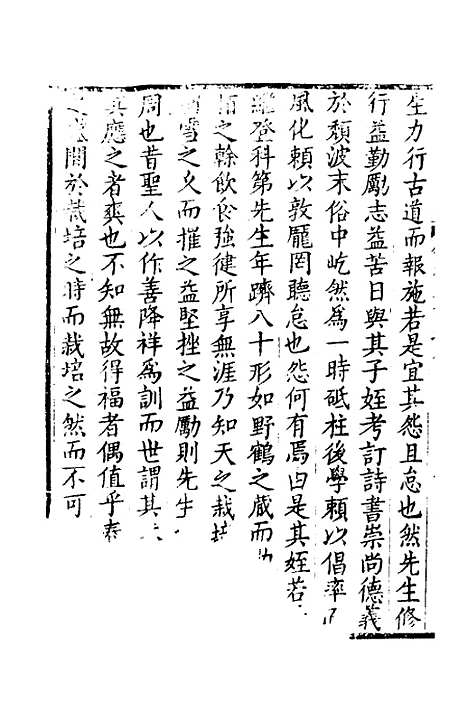 生力行古道而報施若是宜其怨且怠也然先生修
行益勤勵志益苦日與其子姪考訂詩書崇尚德義
於頹波末俗中屹然為一時砥柱後學賴以倡率
風化賴以敦龎罔聽怠也怨何有焉由是其姪若
繼登科第先生年躋八十形如野鶴之蔵而
柏之榦飲食強健所享無涯乃知天之栽培
雪之久而摧之益堅挫之益勵則先生
周也昔聖人以作善降祥為訓而世謂其
其應之者爽也不知無故得福者偶值乎泰
開於栽培之時而栽培之然而不可